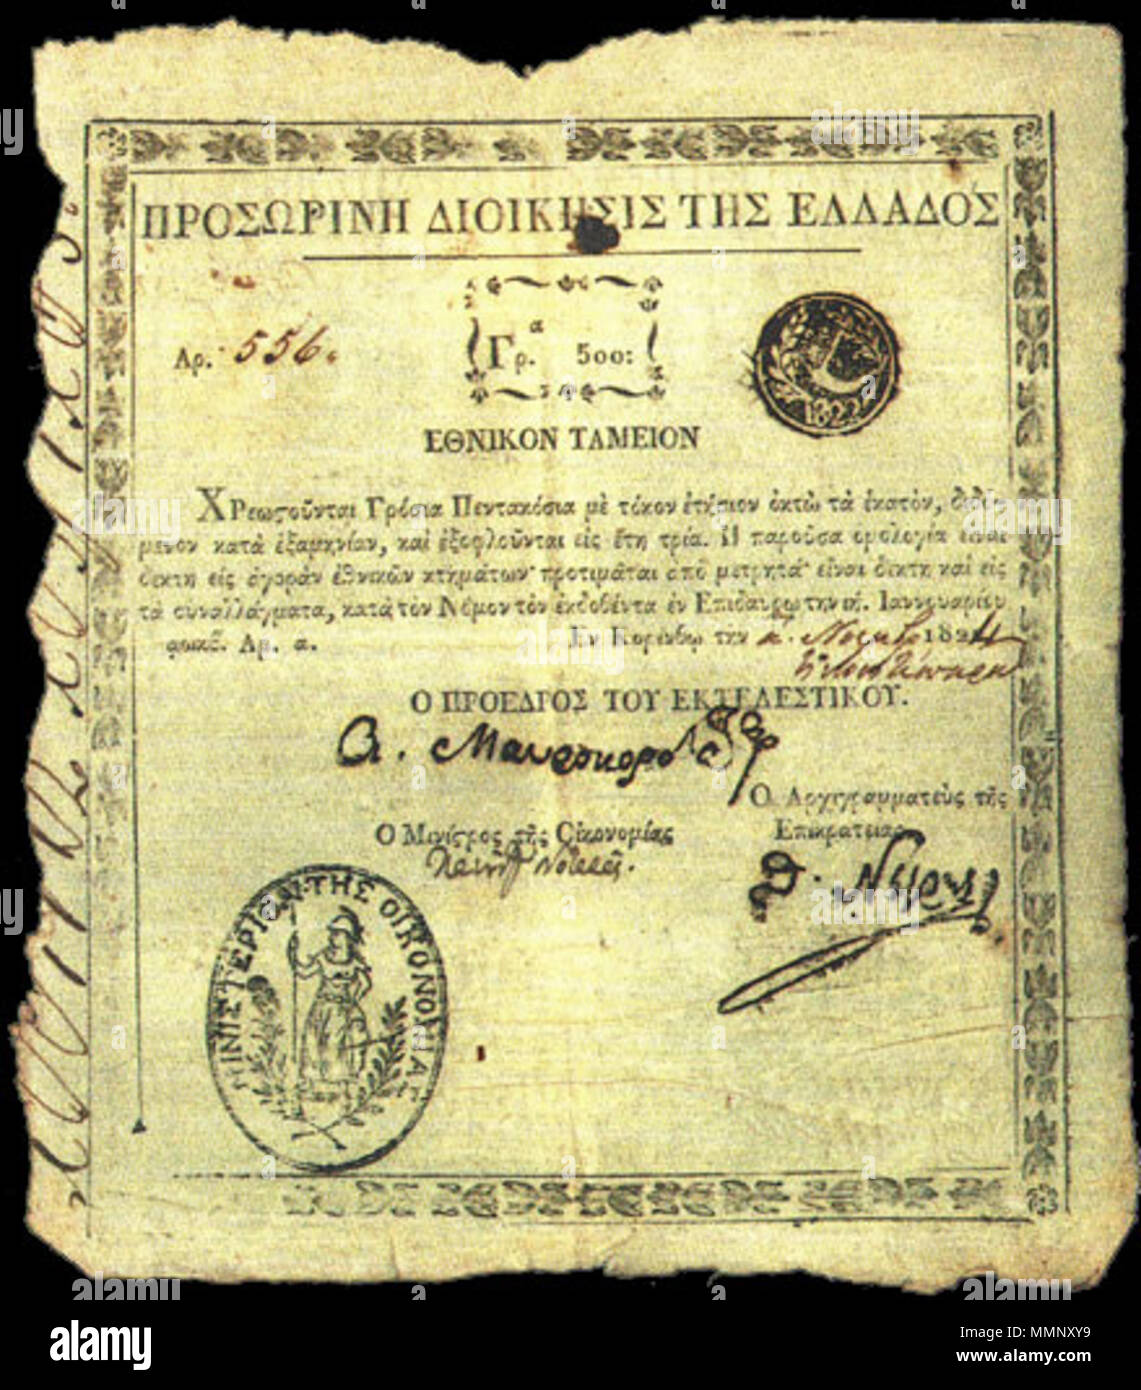 ΠΡΟΣΩΡΙΝΗ ΔΙΟΙΚΗΣΙΣ ΤΗΣ ΕΛΛΑΔΟΣ
Αρ. 556.
Γρ.α 500:
1822
ΕΘΝΙΚΟΝ ΤΑΜΕΙΟΝ
Χρεωστοῦνται Γρόσια Πεντακόσια μὲ τόκον ἐτήσιον ὀκτὼ τὰ ἑκατὸν, διδό-
μενον κατὰ ἑξαμηνίαν, καὶ ἐξοφλοῦνται εἰς ἔτη τρία. Η παροῦσα ομολογία εἶναι
δεκτὴ εἰς ἀγορὰν ἐθνικῶν κτημάτων· προτιμᾶται ἀπὸ μετρητά· εἶναι δεκτὴ καὶ εἰς
τὰ συναλλάγματα, κατὰ τὸν Νόμον τὸν ἐκδοθέντα ἐν Επιδαύρῳ τὴν ιή. Ιαννουαρίου
αωκβ. Αρ. α. Εν Κορίνθῳ τὴν 182
Ο ΠΡΟΕΔΡΟΣ ΤΟΥ ΕΚΤΕΛΕΣΤΙΚΟΥ.
Α. Μαυροκορδάτος
Ο Αρχιγραμματεὺς τῆς
Επικρατείας
Ο Μινίστρος τῆς Οἰκονομίας
Θ. Νέγρης
ΜΙΝΙΣΤΕΡΙΟΝ ΤΗΣ ΟΙΚΟΝΟΜΙΑΣ
alamy
Image ID: MMNXY9
www.alamy.com